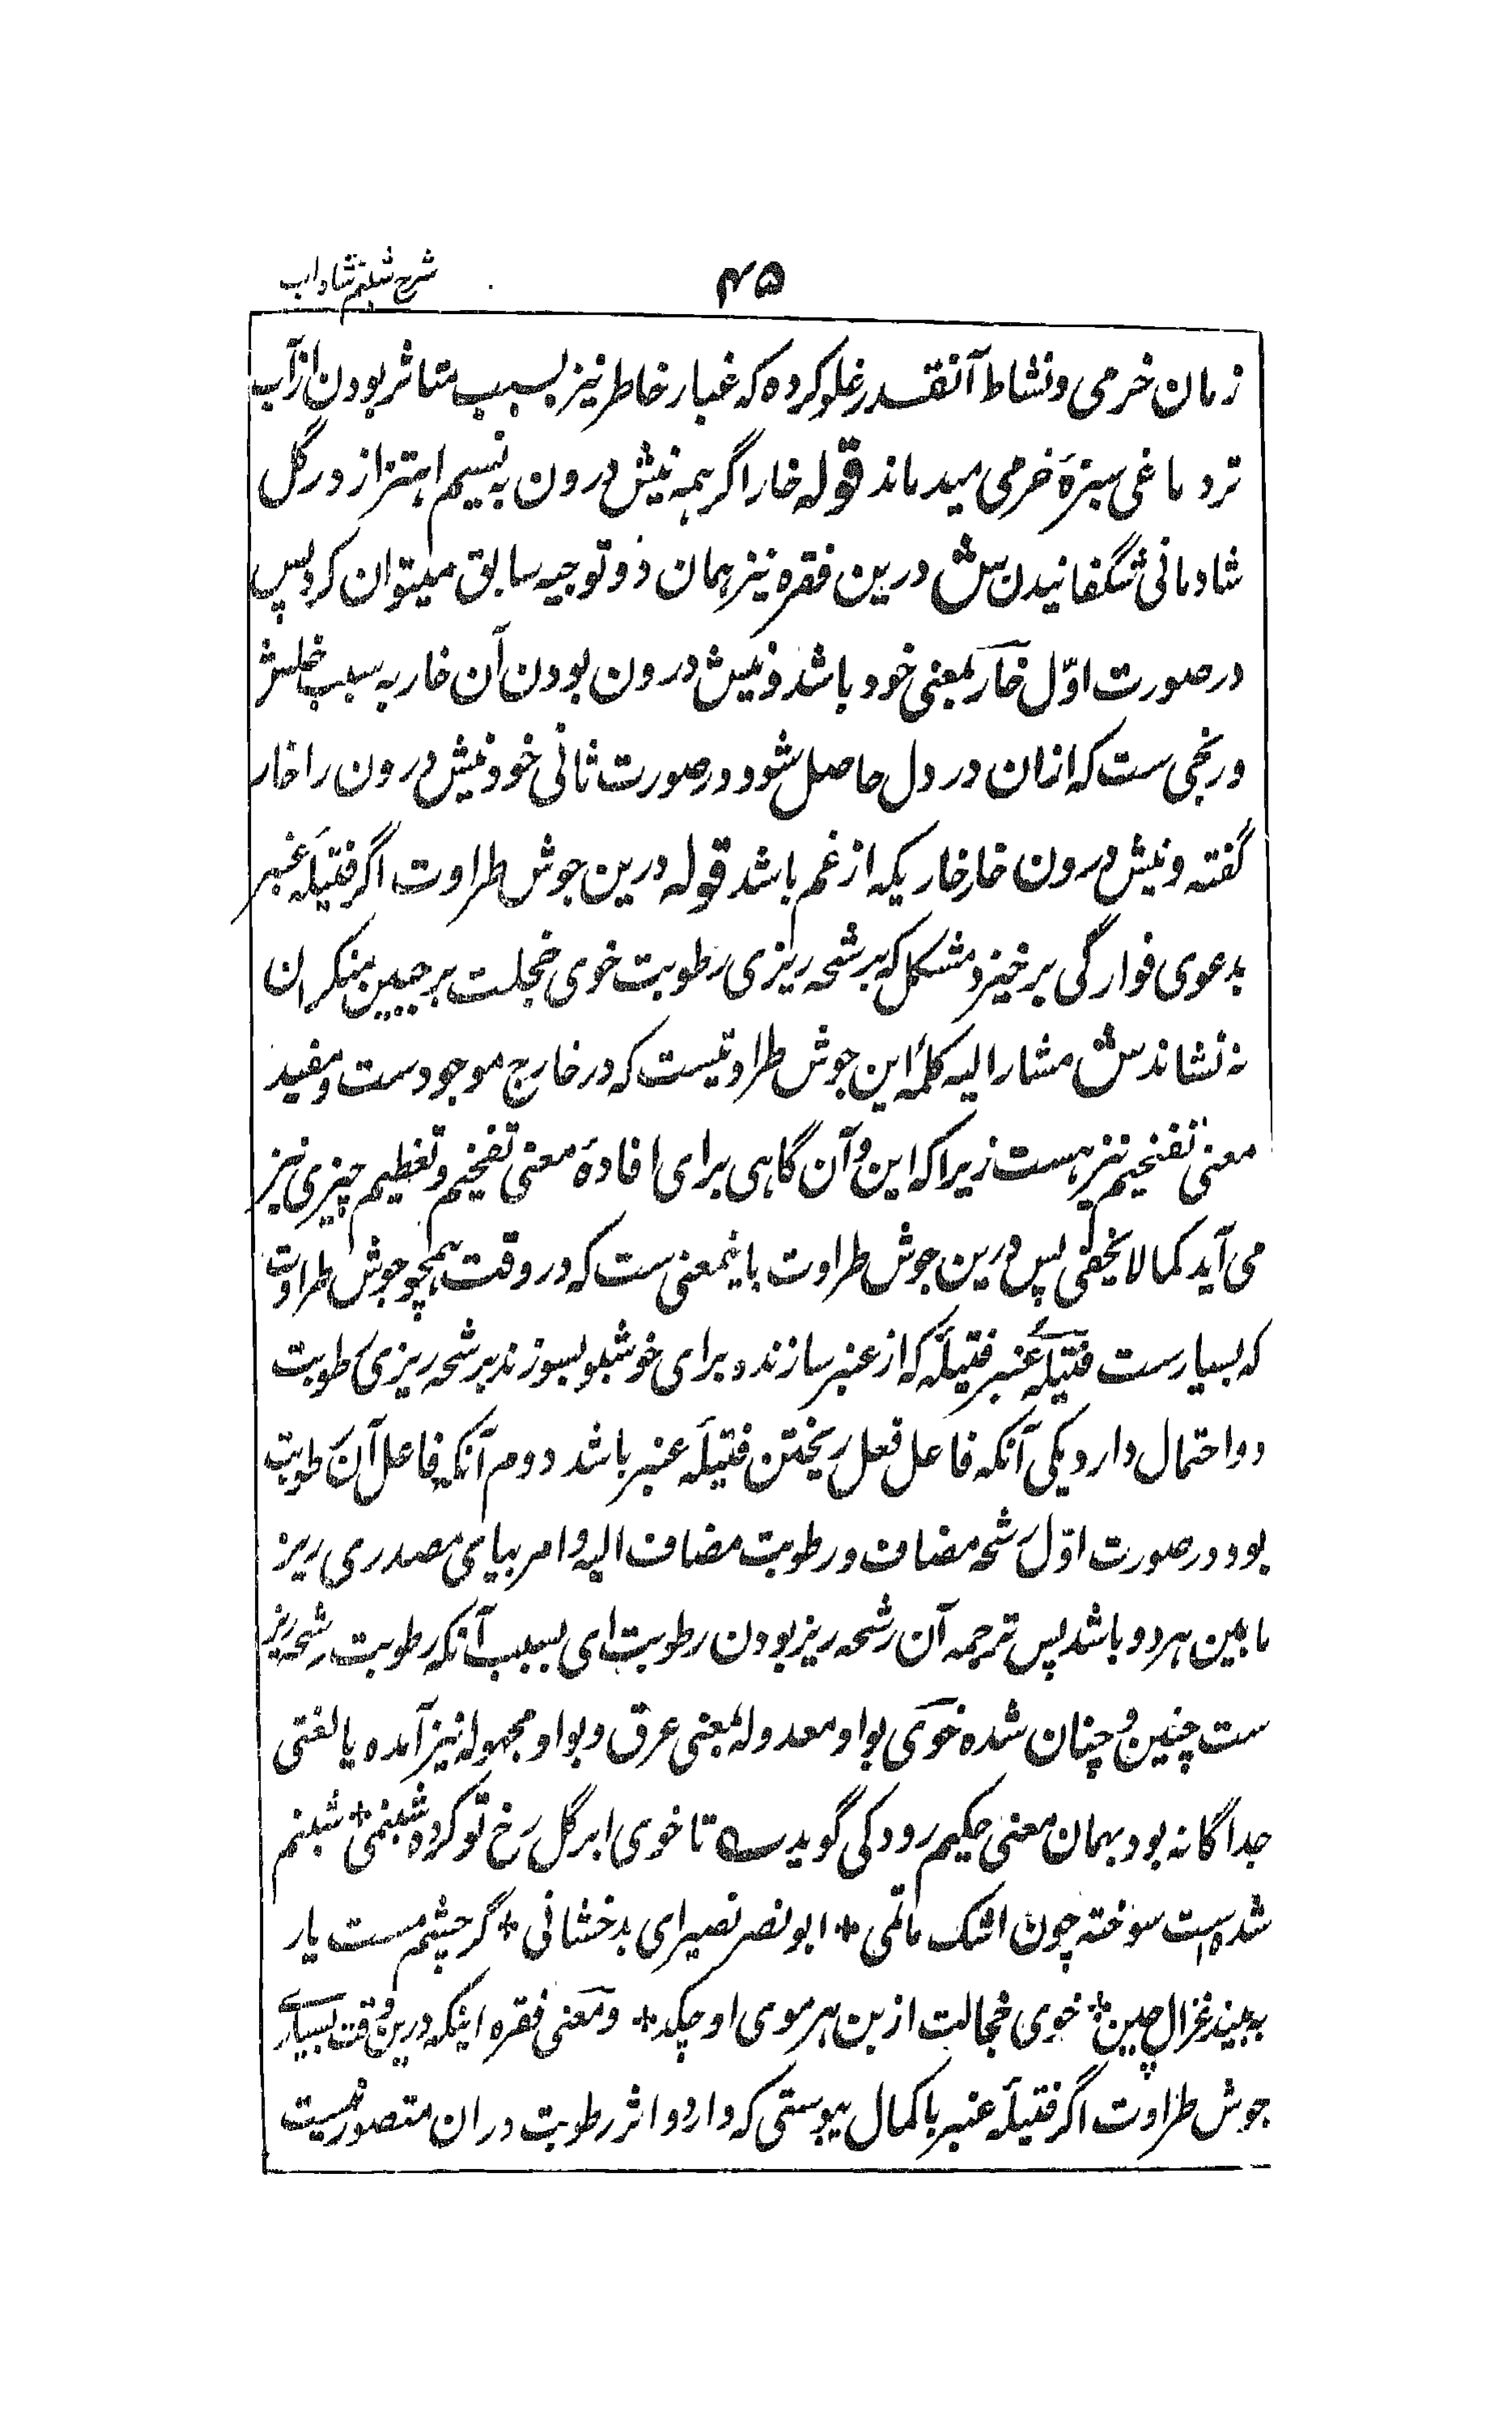 شرح شبنم شاداب
۴۵
زمان خرمی و نشاط آنقدر غلو کرده که غبار خاطر نیز بسبب متاثر بودن از آب
تردماغی سبزهٔ خرمی میدماند قوله خار اگر همه نیش درون به نسیم اهتزاز در گل
شادمانی شگفانیدن ش درین فقره نیز همان دو توجیه سابق میتوان کرد پس
در صورت اوّل خار بمعنی خود باشد و نیش درون بودن آن خار به سبب خلش
و رنجی ست که ازان در دل حاصل شود و در صورت ثانی خود نیش درون را خار
گفته و نیش درون خارخاریکه از غم باشد قوله درین جوش طراوت اگر فتیلهٔ عنبر
بدعوی فوارگی برخیزد مشکل که برشحه ریزی رطوبت خوی خجلت بر جبین منکران
نه نشاند ش مشار الیه کلمهٔ این جوش طراوتیست که در خارج موجودست و مفید
معنی تفخیم نیز هست زیرا که این و آن گاهی برای افادهٔ معنی تفخیم و تعظیم چیزی نیز
می آید کما لا یخفی پس درین جوش طراوت باینمعنی ست که در وقت همچو جوش طراوت
که بسیارست فتیلهٔ عنبر فتیلهٔ که از عنبر سازند و برای خوشبو بسوزند برشحه ریزی رطوبت
دو احتمال دارد یکی آنکه فاعل فعل ریختن فتیلهٔ عنبر باشد دوم آنکه فاعل آن رطوبت
بود و در صورت اوّل رشحه مضاف و رطوبت مضاف الیه و امر بیای مصدری ریز
مابین هر دو باشد پس ترجمه آن رشحه ریز بودن رطوبت ای بسبب آنکه رطوبت رشحه ریز
ست چنین و چنان شده خوی بواو معدوله بمعنی عرق و بواو مجهوله نیز آمده یا لغتی
جداگانه بود بهمان معنی حکیم رودکی گوید ؎ تا خوی ابر گل رخ تو کرده شبنمی + شبنم
شدست سوخته چون اشک ماتمی + ابو نصر نصیرای بدخشانی + گر چشم مست یار
به بیند غزال چین + خوی خجالت از بن هر موی او چکد + و معنی فقره اینکه درین وقت بسیاری
جوش طراوت اگر فتیلهٔ عنبر با کمال یبوستی که دارد و اثر رطوبت دران متصور نیست